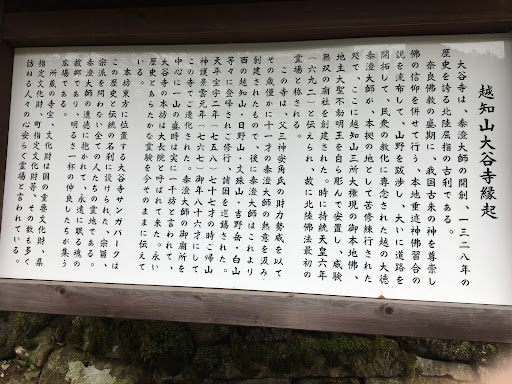 越知山大谷寺縁起
大谷寺は、泰澄大師の開創、一三二八年の
歴史を誇る北陸屈指の古刹である。
奈良佛教の盛期に、我国古来の神を尊崇し
佛の信仰を併せて行う、本地垂迹神佛習合の
説を流布して、山野を跋渉し、大いに道路を
開拓して、民衆の教化に専念された越の大徳
泰澄大師が、本拠の地として苦修練行された
処で、ここに越知山三所大権現の御本地佛、
地主大聖不動明王を自ら彫んで安置し、威験
無双の廟社を創建された。時に持統天皇六年
(六九二)と伝えられ、故に北陸佛法最初の
霊場と称される。
この寺は、父三神安角氏の財力勢威を以て
その歳僅かに十一才の泰澄大師の熱意を汲み
創建されたもので、後に泰澄大師はこれより
西の越知山・日野山・文殊山・吉野岳・白山
等々に登峰されて修行し、諸国を巡錫された。
天平宝字二年(七五八)七十七才の時に帰山
神護景雲元年(七六七)御年八十六才にして
この寺でご遷化された。泰澄大師の御廟所を
中心に一山の盛時は実に一千坊と言われて、
大谷寺の本坊は大長院と呼ばれて来た。永い
歴史とあらたかな霊験を今そのままに伝えて
いる。
本坊東方に位置する大谷寺サンガパークは
この歴史と伝統の名刹に設けられた、宗旨、
宗派を問わないすべての人たちの霊地である。
泰澄大師の道徳に抱かれて、永遠に眠る魂の
故郷であり、明るさ一杯の仲良したちが集う
広場である。
所蔵の寺宝、文化財は国の重要文化財、県
指定文化財、町指定文化財等、その数も多く
訪ねる人々の心安らぐ霊場と言われている。